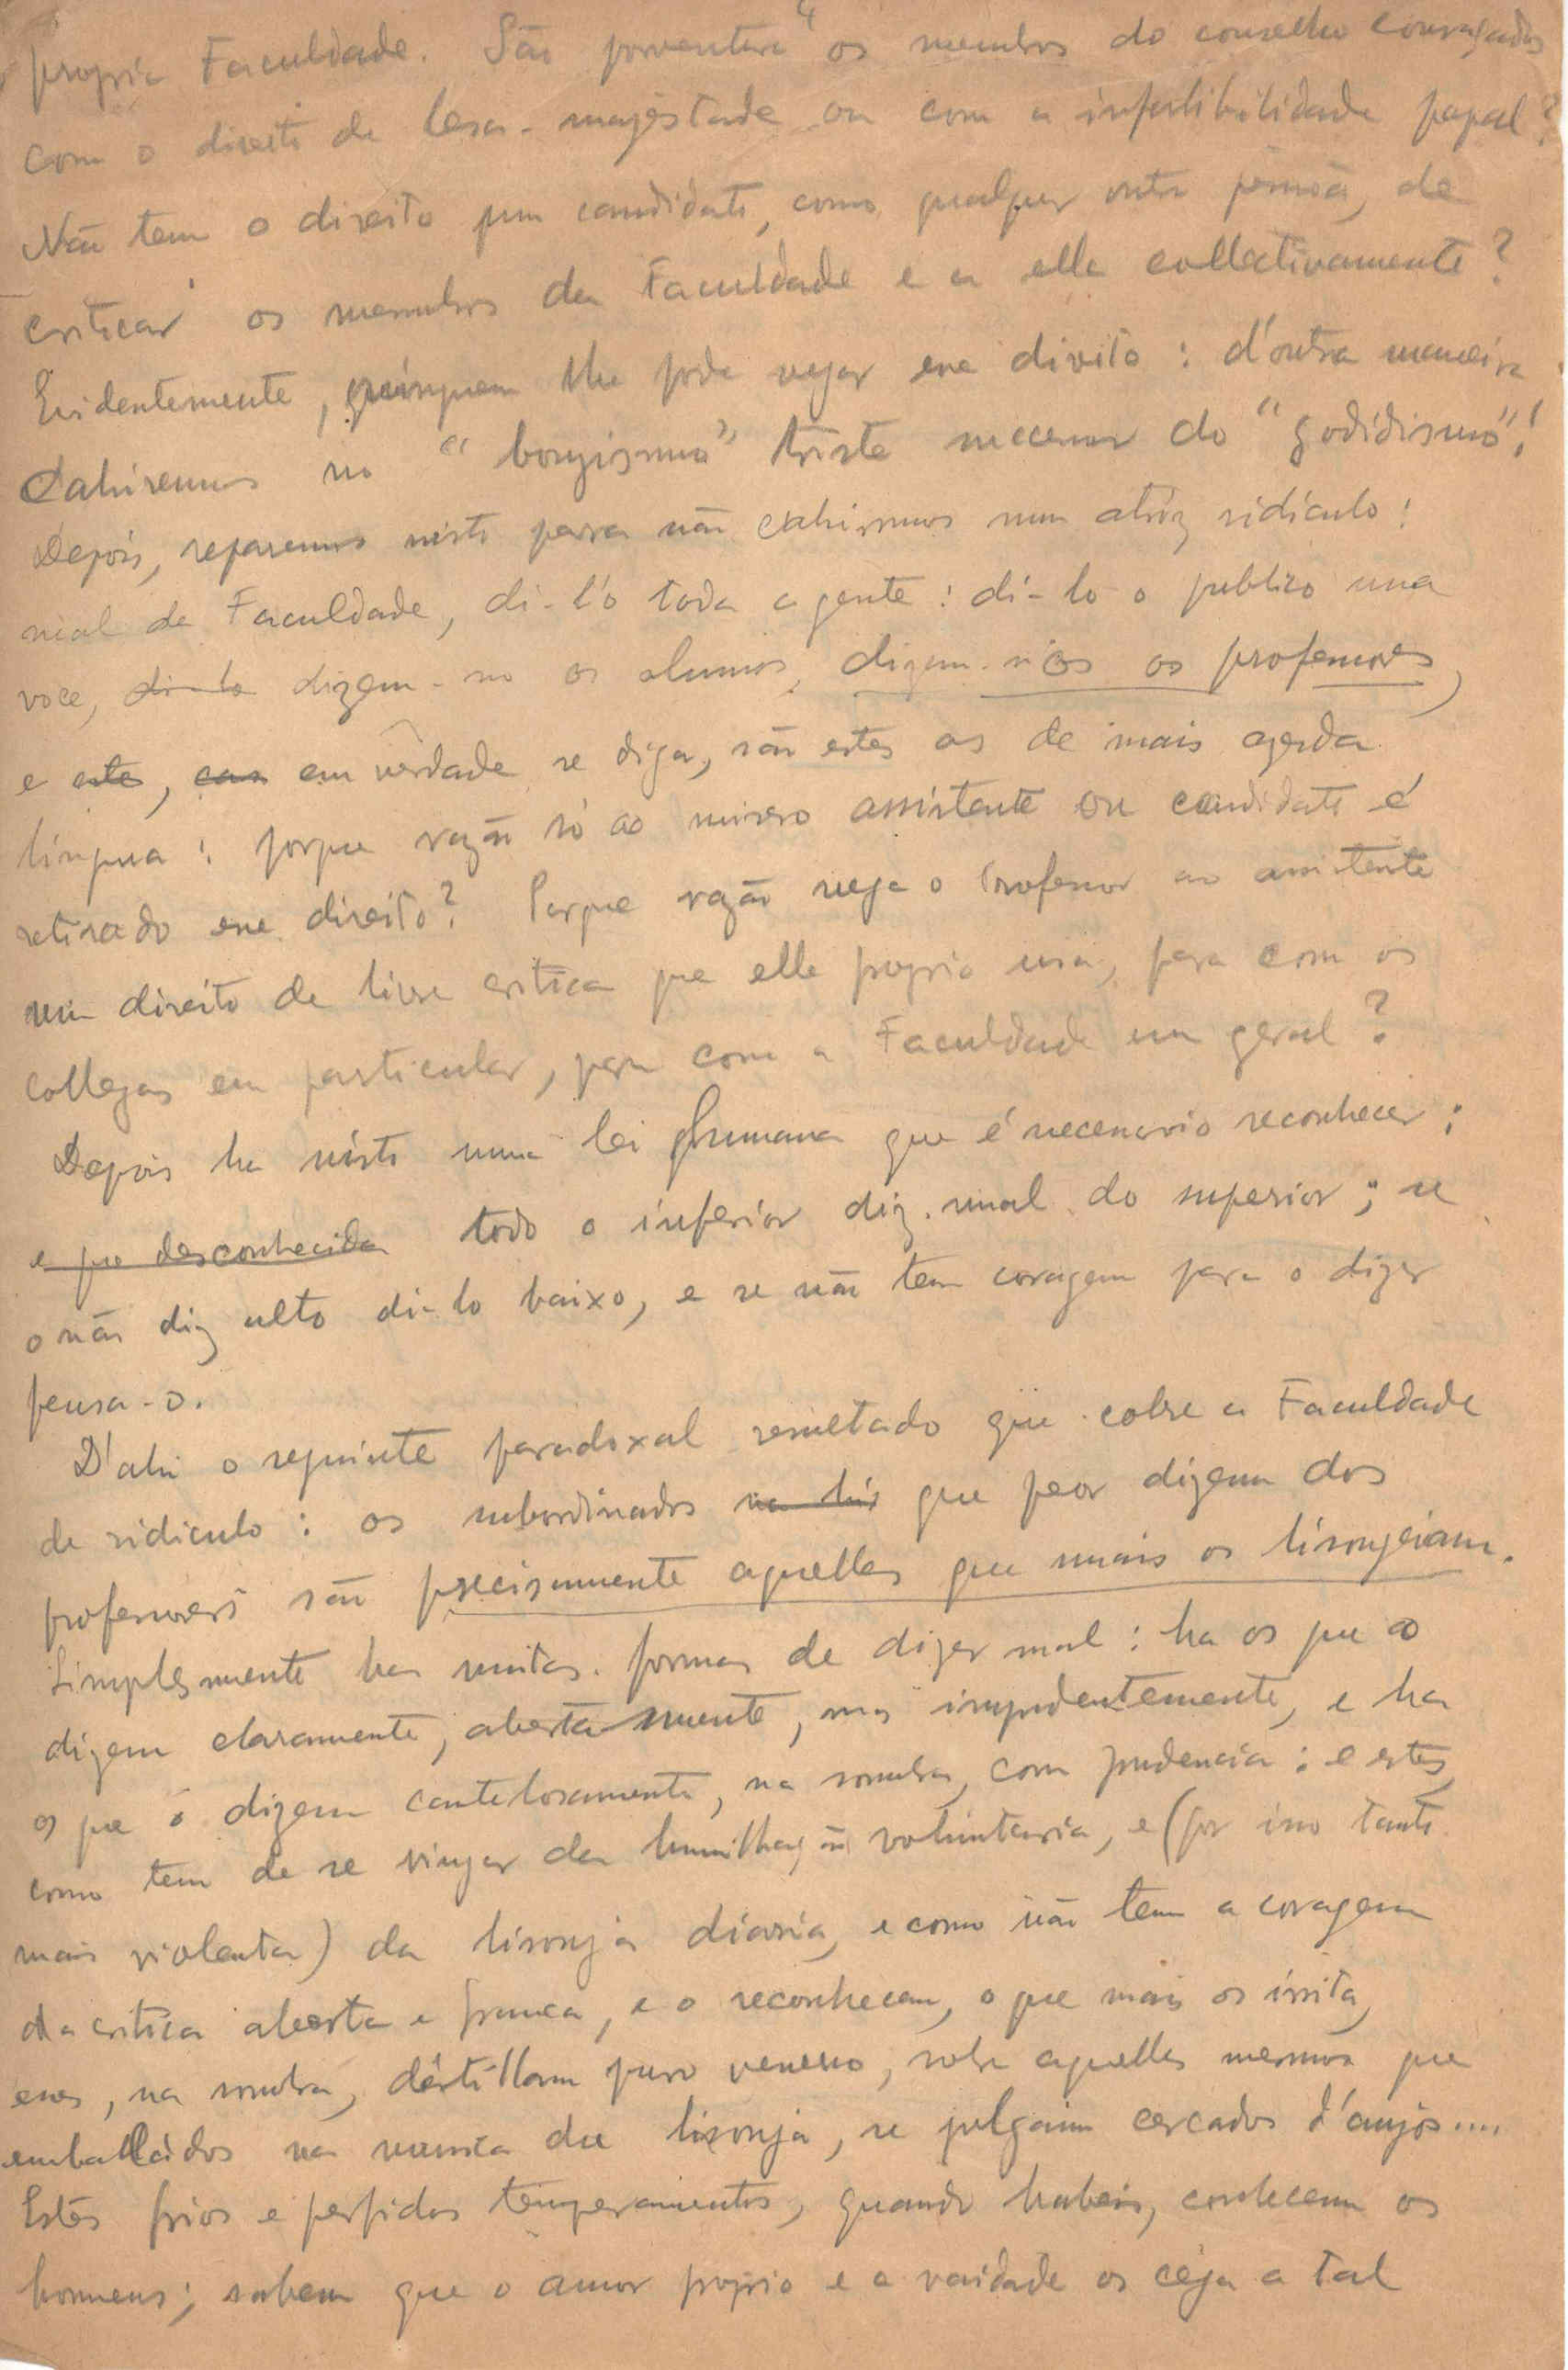 4
propria Faculdade. São porventura os membros do conselho consagrados
com o direito de lesa-magestade ou com a infalibilidade papal?
Não tem o direito um candidato, como qualquer outra pessoa, de
criticar os membros da Faculdade e a ella collectivamente?
Evidentemente, ninguem lhe pode negar esse direito: d'outra maneira
cahiremos no "bonzismo" triste successor do "godidismo"!
Depois, reparemos nisto para não cahirmos num atróz ridículo:
mal da Faculdade, di-l'o toda a gente: di-lo o publico una
voce, di-lo dizem-no os alumnos, dizem-n'os os professores,
e estes, em verdade se diga, são estes os de mais azeda
lingua: porque razão só ao misero assistente ou candidato é
retirado esse direito? Porque razão nega o Professor ao assistente
um direito de livre critica que elle proprio usa, para com os
collegas em particular, para com a Faculdade em geral?
Depois ha nisto uma lei humana que é necessario reconhecer:
e que desconhecida todo o inferior diz mal do superior; se
o não diz alto di-lo baixo, e se não tem coragem para o dizer
pensa-o.
D'ahi o seguinte paradoxal resultado que cobre a Faculdade
de ridiculo: os subordinados que peor dizem dos
professores são precisamente aquelles que mais os lisongeiam.
Simplesmente ha muitas formas de dizer mal: ha os que o
dizem claramente, abertamente, mas imprudentemente, e ha
os que o dizem cautelosamente, na sombra, com prudencia: e estes,
como tem de se vingar da humilhação voluntaria, e (por isso tanto
mais violenta) da lisonja diaria, e como não tem a coragem
da critica aberta e franca, e o reconhecem, o que mais os irrita,
esses, na sombra, destillam puro veneno, sobre aquelles mesmos que
emballados na musica da lisonja, se julgam cercados d'anjos....
Estes frios e perfidos temperamentos, quando habeis, conhecem os
homens; sabem que o amor proprio e a vaidade os cega a tal